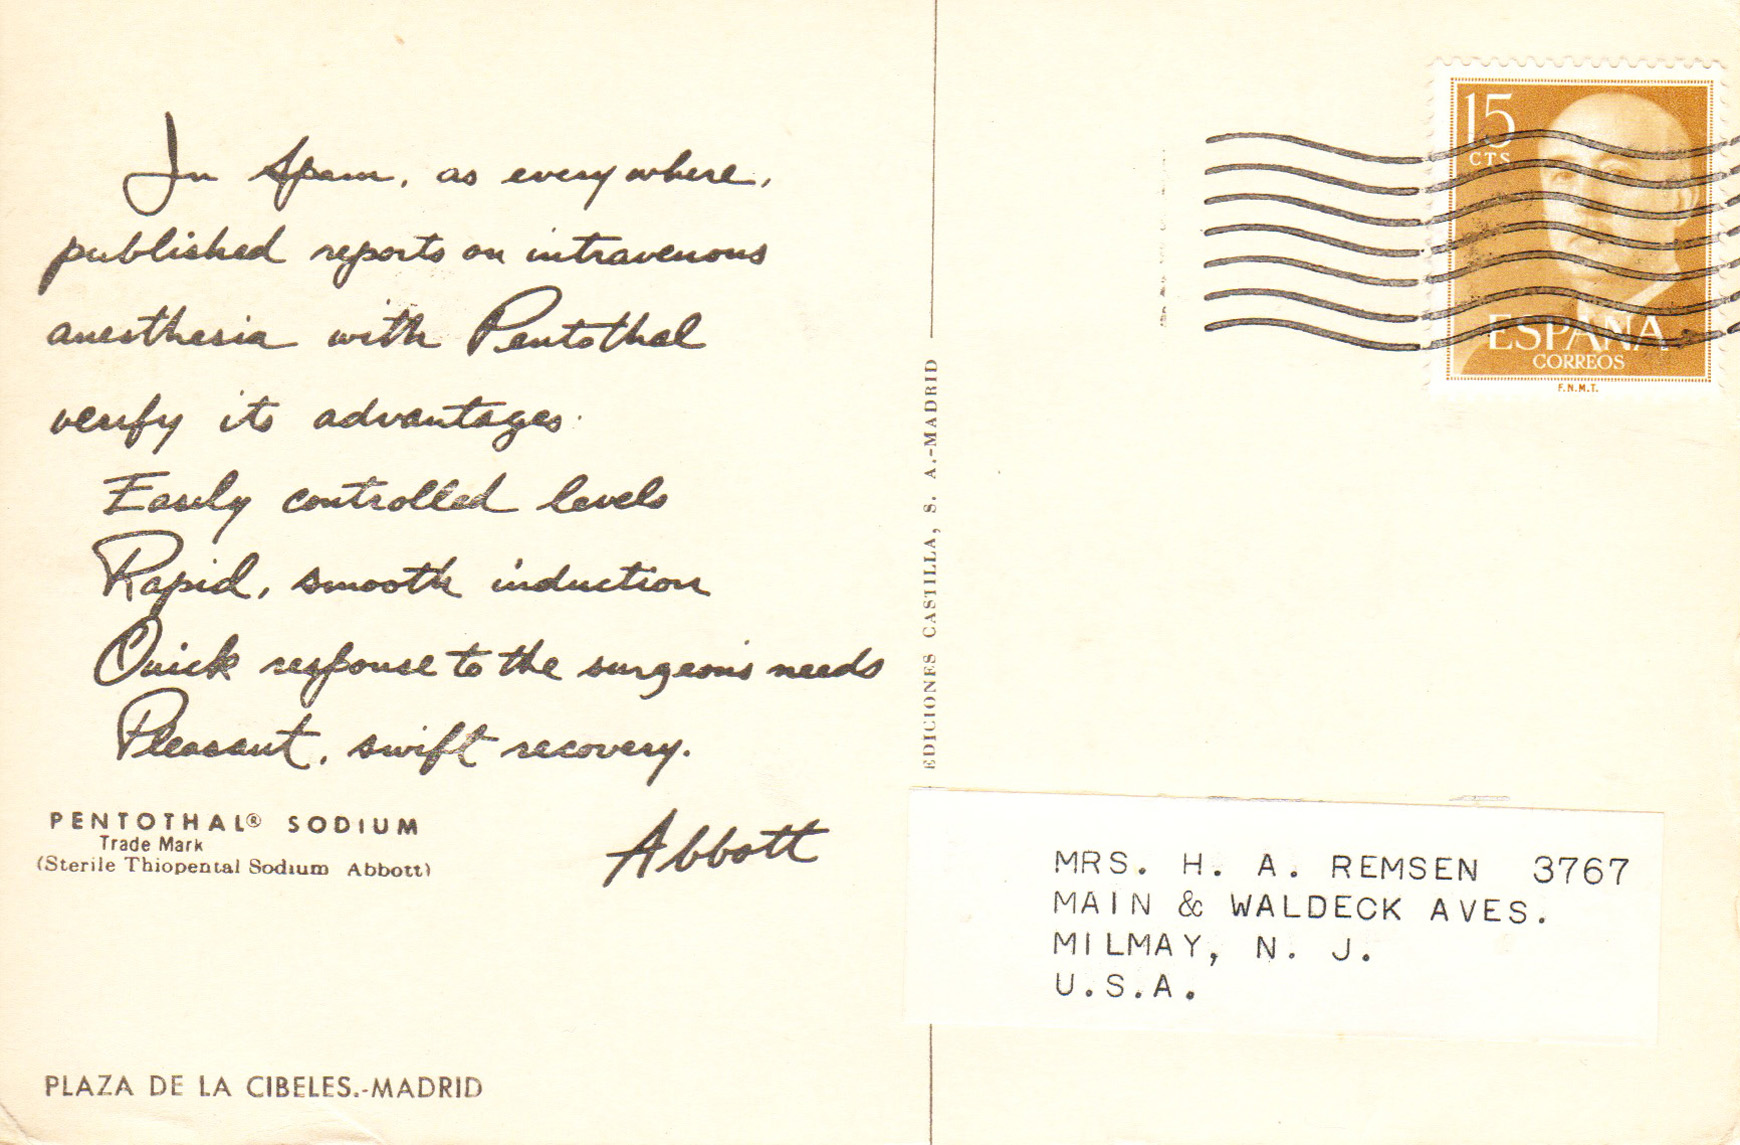 In Spain, as everywhere,
published reports on intravenous
anesthesia with Pentothal
verify its advantages:
Easily controlled levels
Rapid, smooth induction
Quick response to the surgeon's needs
Pleasant, swift recovery.
Abbott
PENTOTHAL® SODIUM
Trade Mark
(Sterile Thiopental Sodium Abbott)
PLAZA DE LA CIBELES.-MADRID
EDICIONES CASTILLA, S. A.-MADRID
15
CTS
ESPAÑA
CORREOS
F.N.M.T.
MRS. H. A. REMSEN 3767
MAIN & WALDECK AVES.
MILMAY, N. J.
U.S.A.